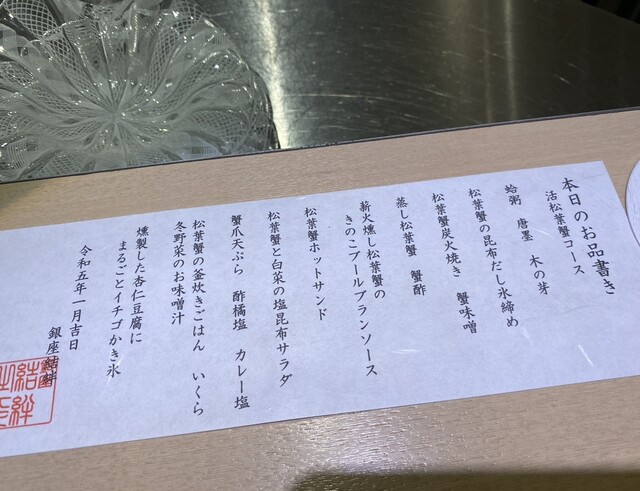 本日のお品書き
活松葉蟹コース
蛤粥　唐墨　木の芽
松葉蟹の昆布だし氷締め
松葉蟹炭火焼き　蟹味噌
蒸し松葉蟹　蟹酢
薪火燻し松葉蟹の
きのこブールブランソース
松葉蟹ホットサンド
松葉蟹と白菜の塩昆布サラダ
蟹爪天ぷら　酢橘塩　カレー塩
松葉蟹の釜炊きごはん　いくら
冬野菜のお味噌汁
燻製した杏仁豆腐に
まるごとイチゴかき氷
令和五年一月吉日
銀座結絆